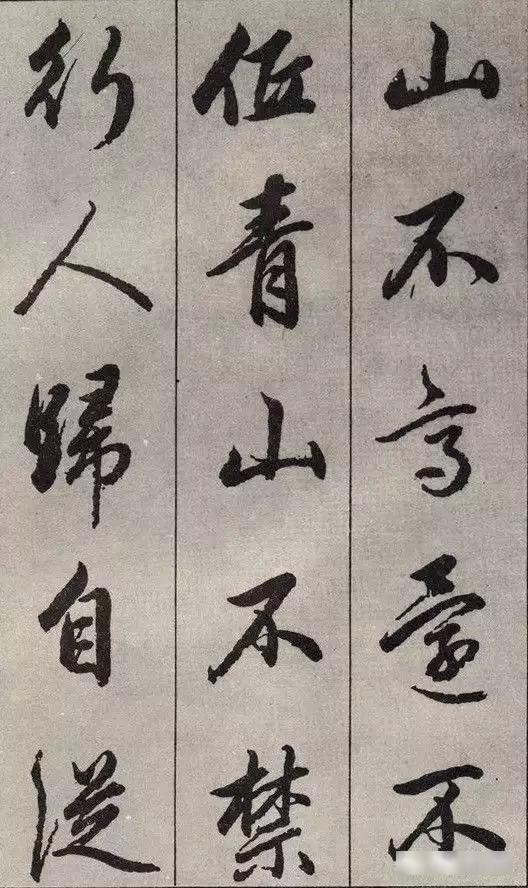 山不高還不
低青山不禁
行人歸自從